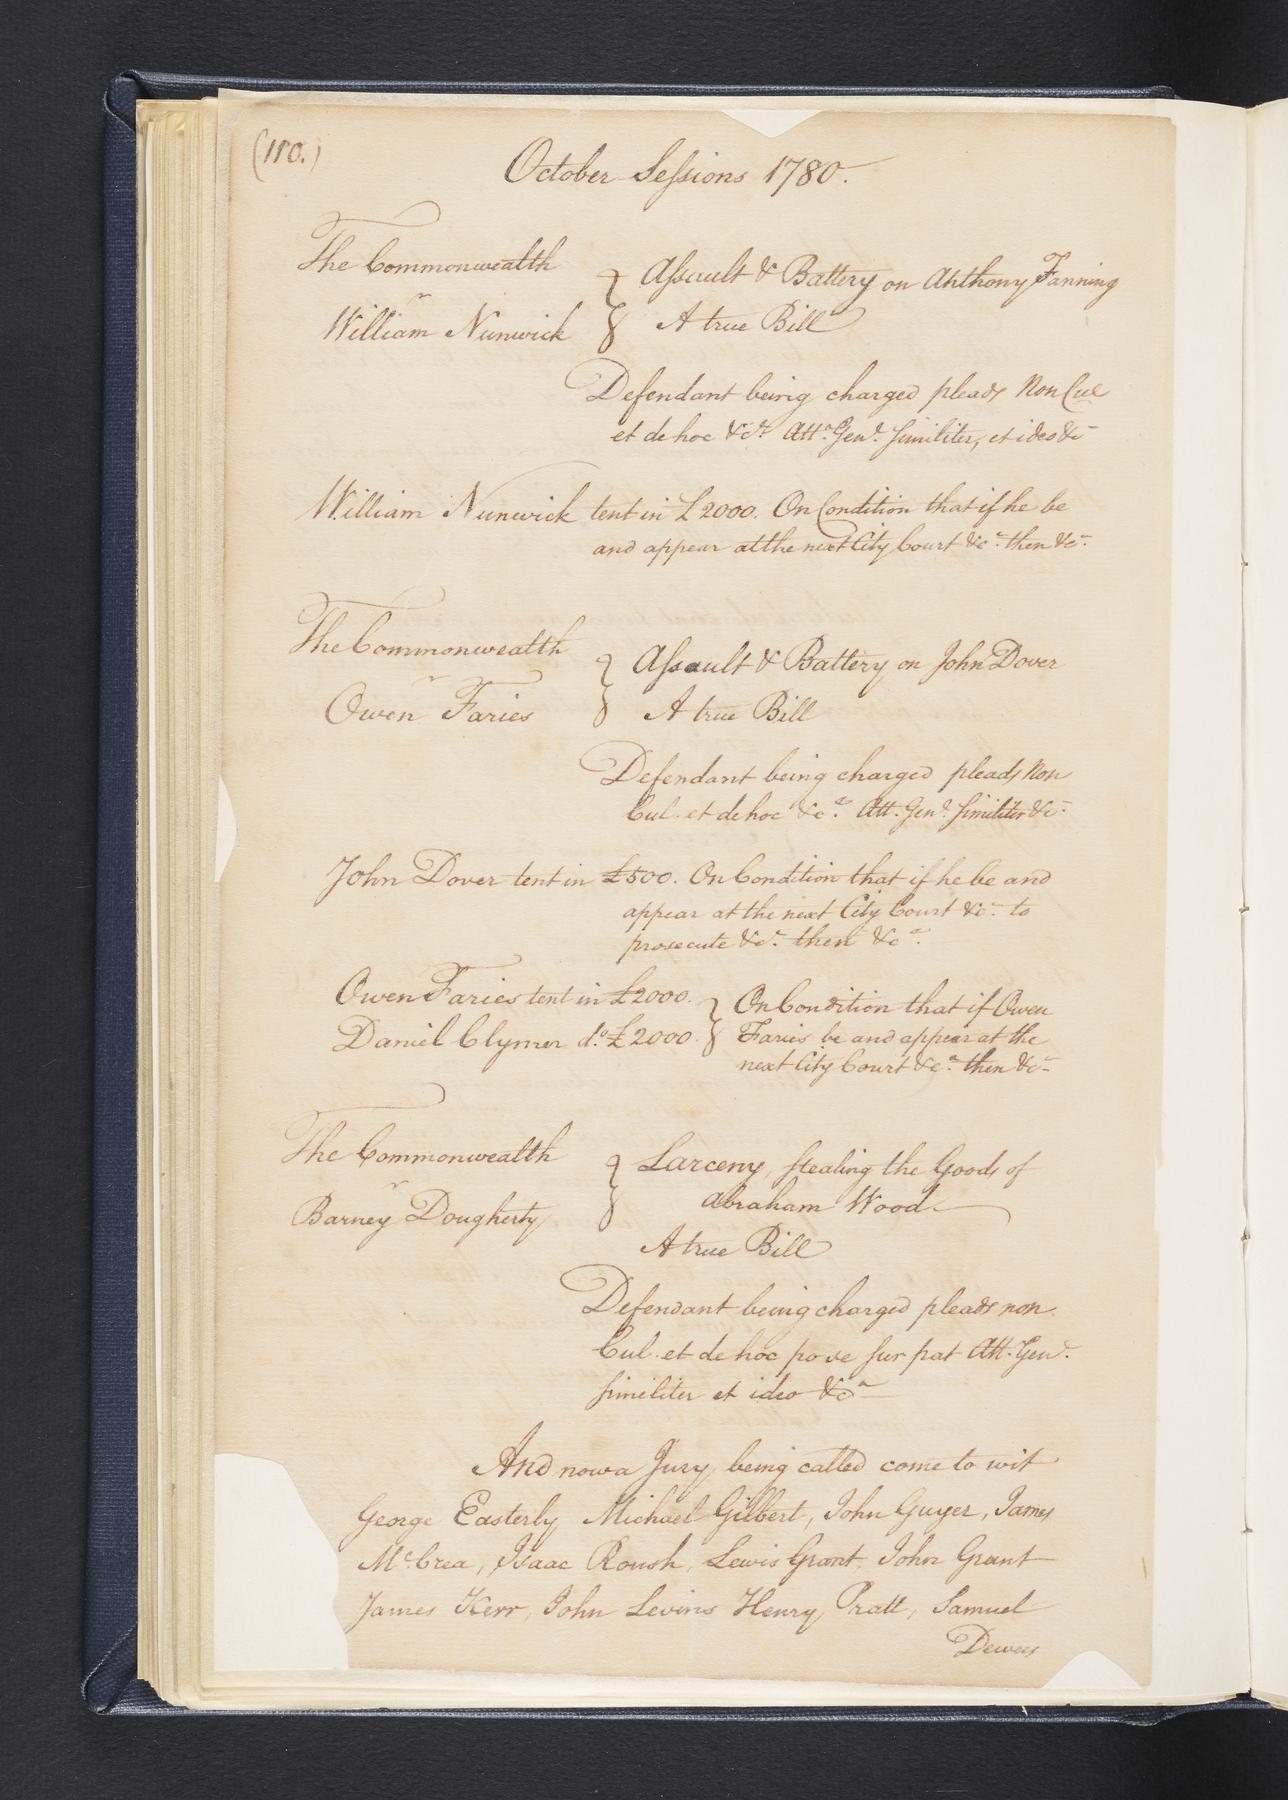 (110.)
October Sessions 1780.
The Commonwealth
vs
William Nunwick
Assault & Battery on Anthony Fanning
A true Bill
Defendant being charged pleads Non Cul
et de hoc &ca. Atta. Genl. similiter, et ideo &c
William Nunwick tent in £2000. On Condition that if he be
and appear at the next City Court &ca. then &ca.
The Commonwealth
v
Owen Faries
Assault & Battery on John Dover
A true Bill
Defendant being charged pleads Non
Cul. et de hoc &ca. Att. Genl. similiter &c.
John Dover tent in £500. On Condition that if he be and
appear at the next City Court &ca. to
prosecute &ca. then &ca.
Owen Faries tent in £2000.
Daniel Clymer do. £2000.
On Condition that if Owen
Faries be and appear at the
next City Court &ca. then &c.
The Commonwealth
v
Barney Dougherty
Larceny, stealing the Goods of
Abraham Wood
A true Bill
Defendant being charged pleads non
Cul. et de hoc po se sur pat Att. Genl.
similiter et ideo &ca
And now a Jury being called come to wit
George Easterly Michael Gilbert, John Guyer, James
McCrea, Isaac Roush, Lewis Grant, John Grant
James Kerr, John Levins Henry Pratt, Samuel
Dewees